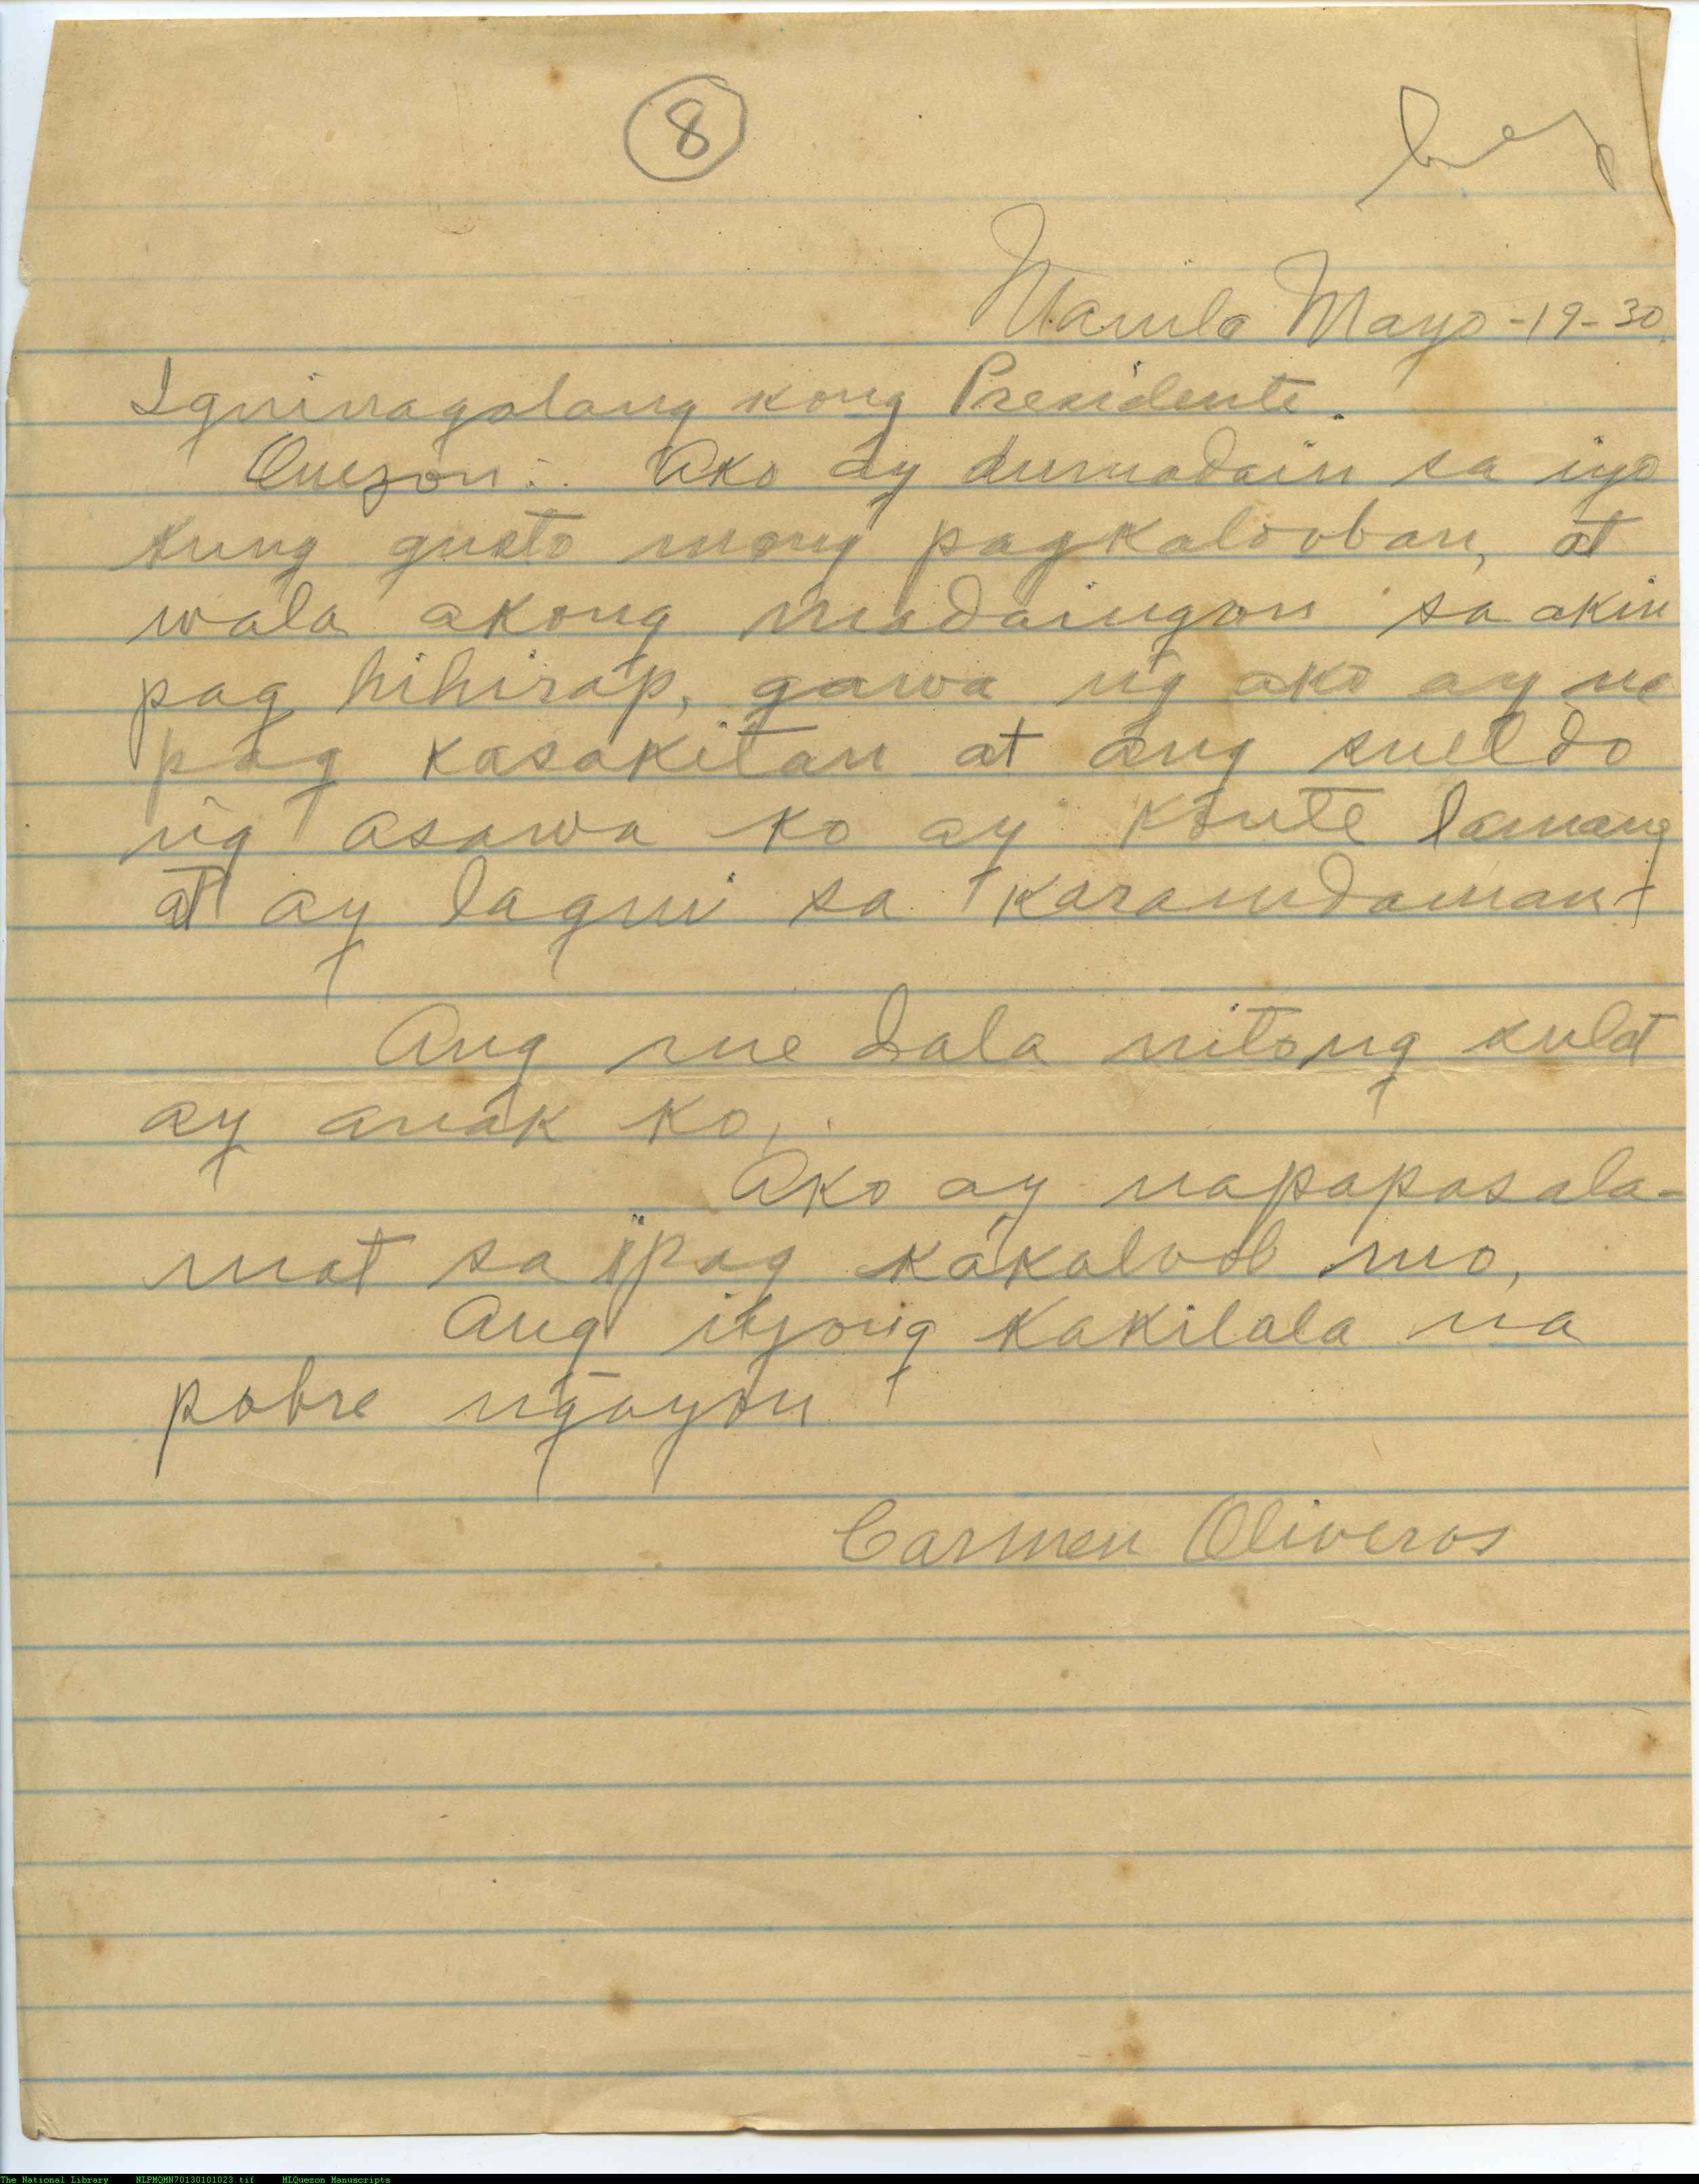 8
Manila Mayo-19-30.
Iguinagalang kong Presidente.
Quezon:. Ako ay dumadain sa iyo
kung gusto mong pagkalooban, at
wala akong madaingan sa akin
pag hihirap, gawa ng ako ay na
pag kasakitan at ang sueldo
ng asawa ko ay konte lamang
at ay lagui sa karamdaman
Ang me dala nitong sulat
ay anak ko,.
Ako ay napapasala-
mat sa ipag kakaloob mo,
Ang iyong kakilala na
pobre ngayon
Carmen Oliveros
The National Library NLPMQMN70130101023.tif MLQuezon Manuscripts